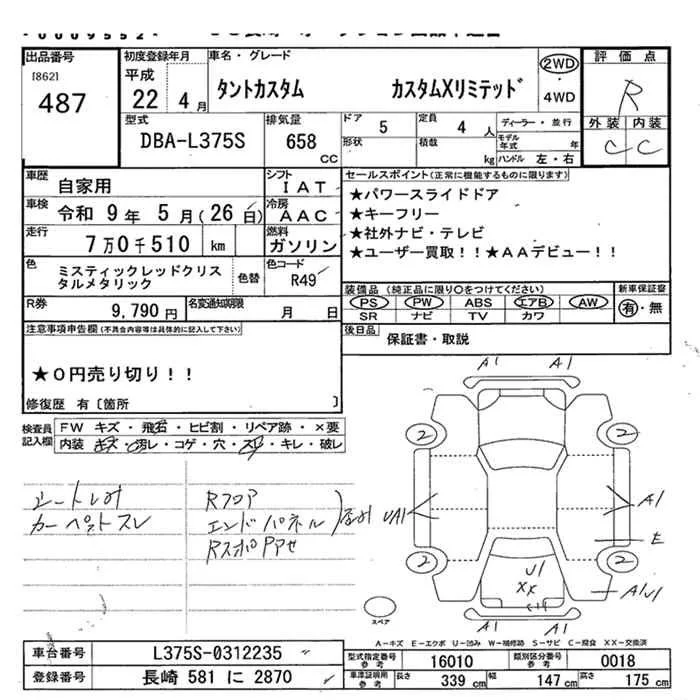 出品番号
[862]
487
初度登録年月
平成
22 4月
車名・グレード
タントカスタム カスタムXリミテッド
2WD
4WD
評価点
R
外装 内装
C C
型式
DBA-L375S
排気量
658
CC
ドア
5
定員
4 人
形状
積載
kg
ディーラー・並行
モデル年式 年
ハンドル 左・右
車歴
自家用
シフト
IAT
車検
令和 9年 5月(26日)
冷房
AAC
走行
7万0千510 km
燃料
ガソリン
色
ミスティックレッドクリス
タルメタリック
色替
色コード
R49
R券
9,790円
名変通知期限
月 日
セールスポイント(正常に機能するものに限ります)
★パワースライドドア
★キーフリー
★社外ナビ・テレビ
★ユーザー買取!!★AAデビュー!!
装備品(純正品に限り○をつけてください)
PS PW ABS エアB AW
SR ナビ TV カワ
新車保証書
有・無
後日品
保証書・取説
注意事項申告欄(不具合内容等は具体的に記入して下さい)
★0円売り切り!!
修復歴 有〔箇所 〕
検査員
記入欄
FW キズ・飛石・ヒビ割・リペア跡・×要
内装 キズ・汚レ・コゲ・穴・スレ・キレ・破レ
カーペットスレ
Rフロア
エンドパネル
A1 A1
2 2
UA1
A1
E
2 2
U1
XX
A1U1
A1 A1
スペア
A-キズ E-エクボ U-凹み W-補修跡 S-サビ C-腐食 XX-交換済
車台番号
L375S-0312235
登録番号
長崎 581 に 2870
型式指定番号
参考
16010
類別区分番号
参考
0018
車庫証明用
参考
長さ 339 cm 幅 147 cm 高さ 175 cm